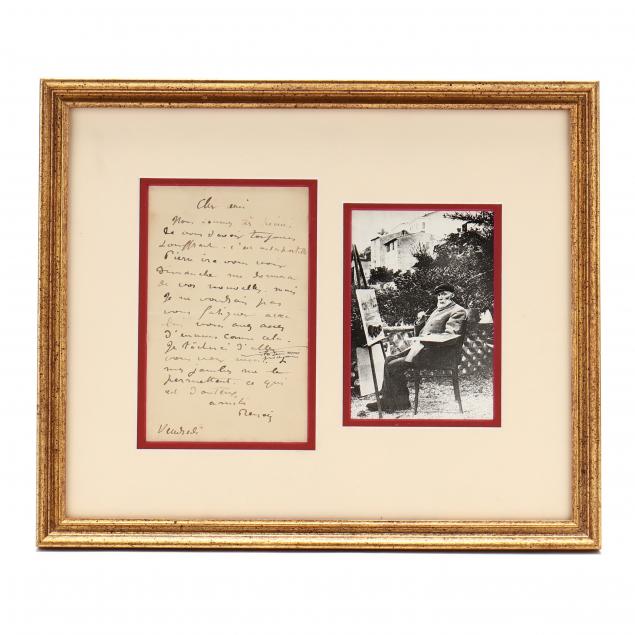 Cher ami
Nous sommes très
de vous savoir toujours
souffrant. c'est insupportable
Pierre ira vous voir
Dimanche me donnera
de vos nouvelles, mais
je ne voudrais pas
vous fatiguer avec
vous avez assez
d'ennuis comme cela.
Je tâcherai d'aller
vous voir si
mes jambes me le
permettent. ce qui
est douteux
amitiés
Renoir
Vendredi